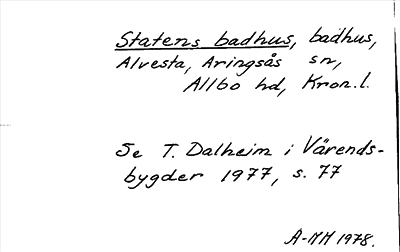 Statens badhus, badhus,
Alvesta, Aringsås sn,
Allbo hd, Kron.l.
Se T. Dalheim i Värends-
bygder 1977, s. 77
A-MH 1978.